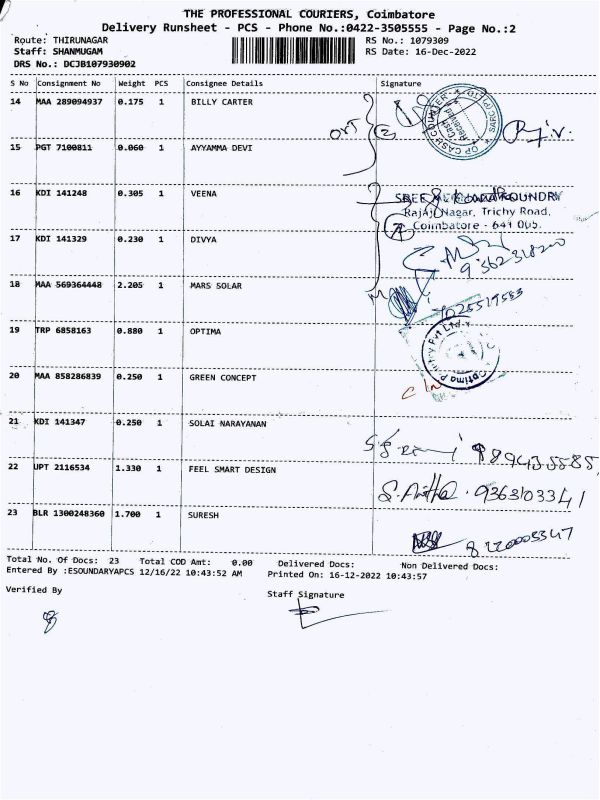 THE PROFESSIONAL COURIERS, Coimbatore
Delivery Runsheet - PCS - Phone No.:0422-3505555 - Page No.:2
Route: THIRUNAGAR RS No.: 1079309
Staff: SHANMUGAM RS Date: 16-Dec-2022
DRS No.: DCJB107930902
S No Consignment No Weight PCS Consignee Details Signature
14 MAA 289094937 0.175 1 BILLY CARTER
15 PGT 7100811 0.060 1 AYYAMMA DEVI
16 KDI 141248 0.305 1 VEENA
Rajaji Nagar, Trichy Road,
Coimbatore - 641 005.
17 KDI 141329 0.230 1 DIVYA
18 MAA 569364448 2.205 1 MARS SOLAR
19 TRP 6858163 0.880 1 OPTIMA
20 MAA 858286839 0.250 1 GREEN CONCEPT
21 KDI 141347 0.250 1 SOLAI NARAYANAN
22 UPT 2116534 1.330 1 FEEL SMART DESIGN
9363103341
23 BLR 1300248360 1.700 1 SURESH
Total No. Of Docs: 23 Total COD Amt: 0.00 Delivered Docs: Non Delivered Docs:
Entered By :ESOUNDARYAPCS 12/16/22 10:43:52 AM Printed On: 16-12-2022 10:43:57
Verified By Staff Signature